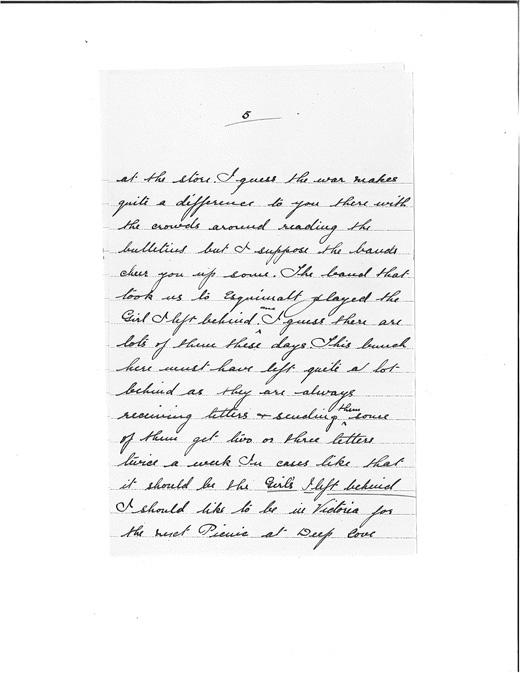 5
at the store. I guess the war makes
quite a difference to you there with
the crowds around reading the
bulletins but I suppose the bands
cheer you up some. The band that
took us to Esquimalt played the
Girl I left behind ^me. I guess there are
lots of them these days. This bunch
here must have left quite a lot
behind as they are always
receiving letters + sending ^them some
of them get two or three letters
twice a week In cases like that
it should be the Girls I left behind
I should like to be in Victoria for
the next Picnic at Deep Cove